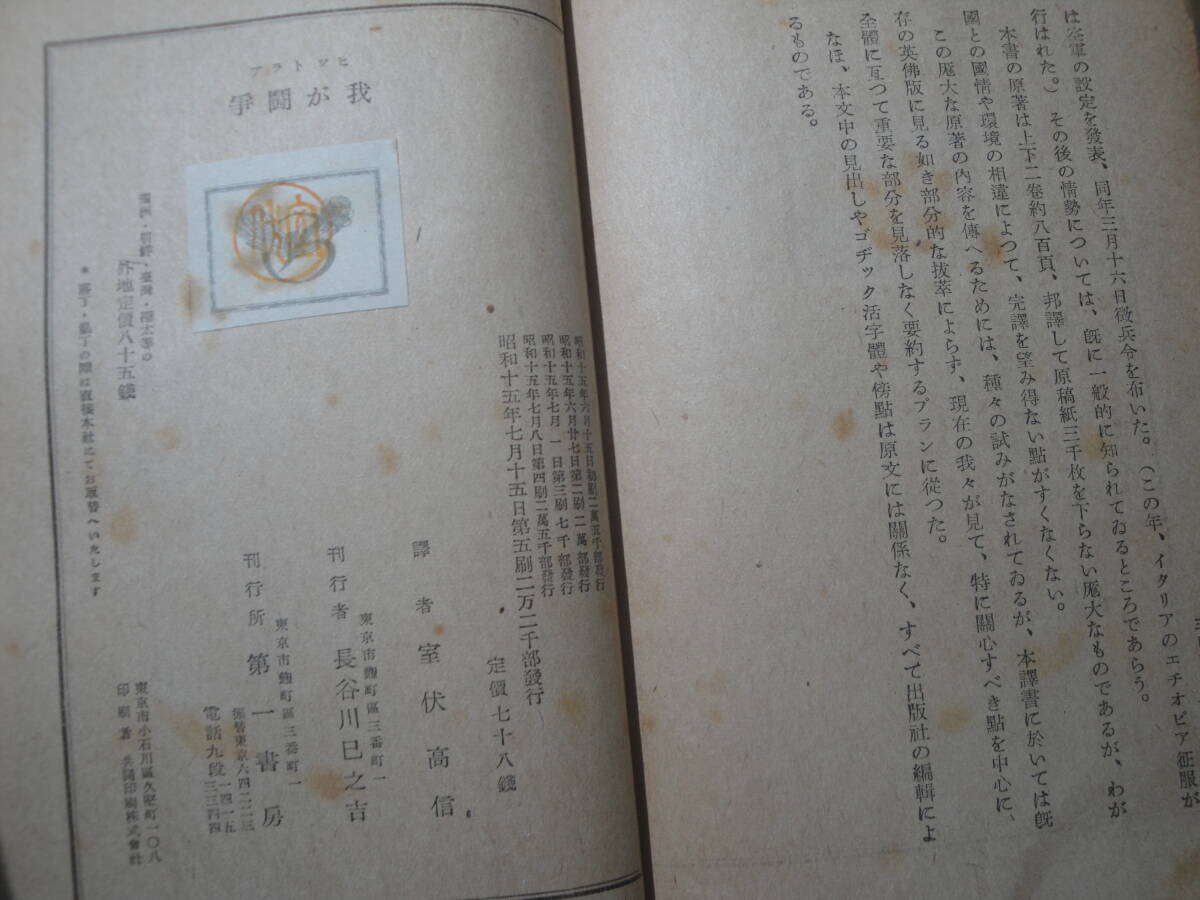 は空軍の設定を發表、同年三月十六日徴兵令を布いた。（この年、イタリアのエチオピア征服が
行はれた。）その後の情勢については、既に一般的に知られてゐるところであらう。
本書の原著は上下二卷約八百頁、邦譯して原稿紙三千枚を下らない厖大なものであるが、わが
國との國情や環境の相違によつて、完譯を望み得ない點がすくなくない。
この厖大な原著の内容を傳へるためには、種々の試みがなされてゐるが、本譯書に於いては既
存の英佛版に見る如き部分的な拔萃によらず、現在の我々が見て、特に關心すべき點を中心に、
全體に亙つて重要な部分を見落しなく要約するプランに從つた。
なほ、本文中の見出しやゴヂック活字體や傍點は原文には關係なく、すべて出版社の編輯によ
るものである。
ヒットラア
我が鬪爭
昭和十五年六月十五日初刷二萬五千部發行
昭和十五年六月廿七日第二刷二萬部發行
昭和十五年七月一日第三刷七千部發行
昭和十五年七月八日第四刷二萬五千部發行
昭和十五年七月十五日第五刷二万二千部發行
定價七十八錢
譯者 室伏高信
東京市麹町區三番町一
刊行者 長谷川巳之吉
東京市麹町區三番町一
刊行所 第一書房
振替東京六四二二三
電話九段三三四四 一四一五
東京市小石川區久堅町一〇八
印刷者 共同印刷株式會社
滿洲・朝鮮・臺灣・樺太等の
外地定價八十五錢
＊落丁・亂丁の際は直接本社にてお取替へいたします